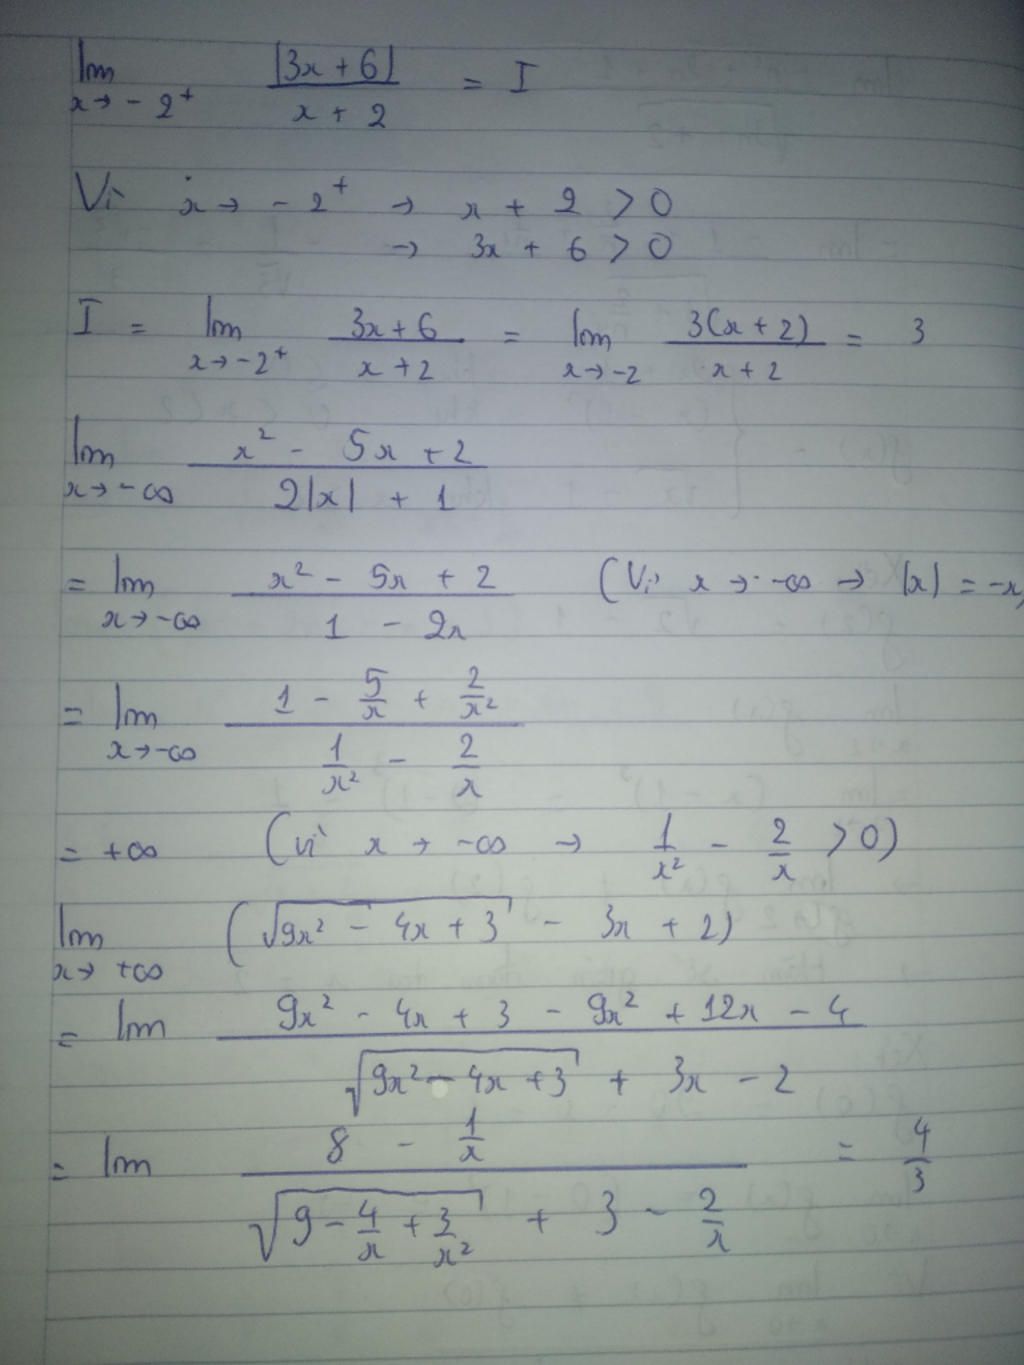 lim x→-2⁺ |3x+6| / (x+2) = I
Vì x→ -2⁺ → x + 2 > 0
→ 3x + 6 > 0
I = lim x→-2⁺ (3x+6) / (x+2) = lim x→-2 3(x+2) / (x+2) = 3
lim x→-∞ (x² - 5x + 2) / (2|x| + 1)
= lim x→-∞ (x² - 5x + 2) / (1 - 2x) (Vì x→ -∞ → |x| = -x)
= lim x→-∞ (1 - 5/x + 2/x²) / (1/x² - 2/x)
= +∞ (Vì x → -∞ → 1/x² - 2/x > 0)
lim x→ +∞ (√(9x² - 4x + 3) - 3x + 2)
= lim (9x² - 4x + 3 - 9x² + 12x - 4) / (√(9x² - 4x + 3) + 3x - 2)
= lim (8 - 1/x) / (√(9 - 4/x + 3/x²) + 3 - 2/x) = 4/3